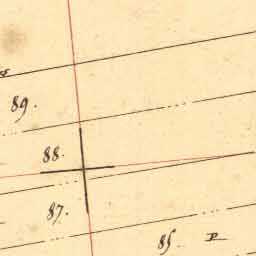 89.
88.
87.
85.